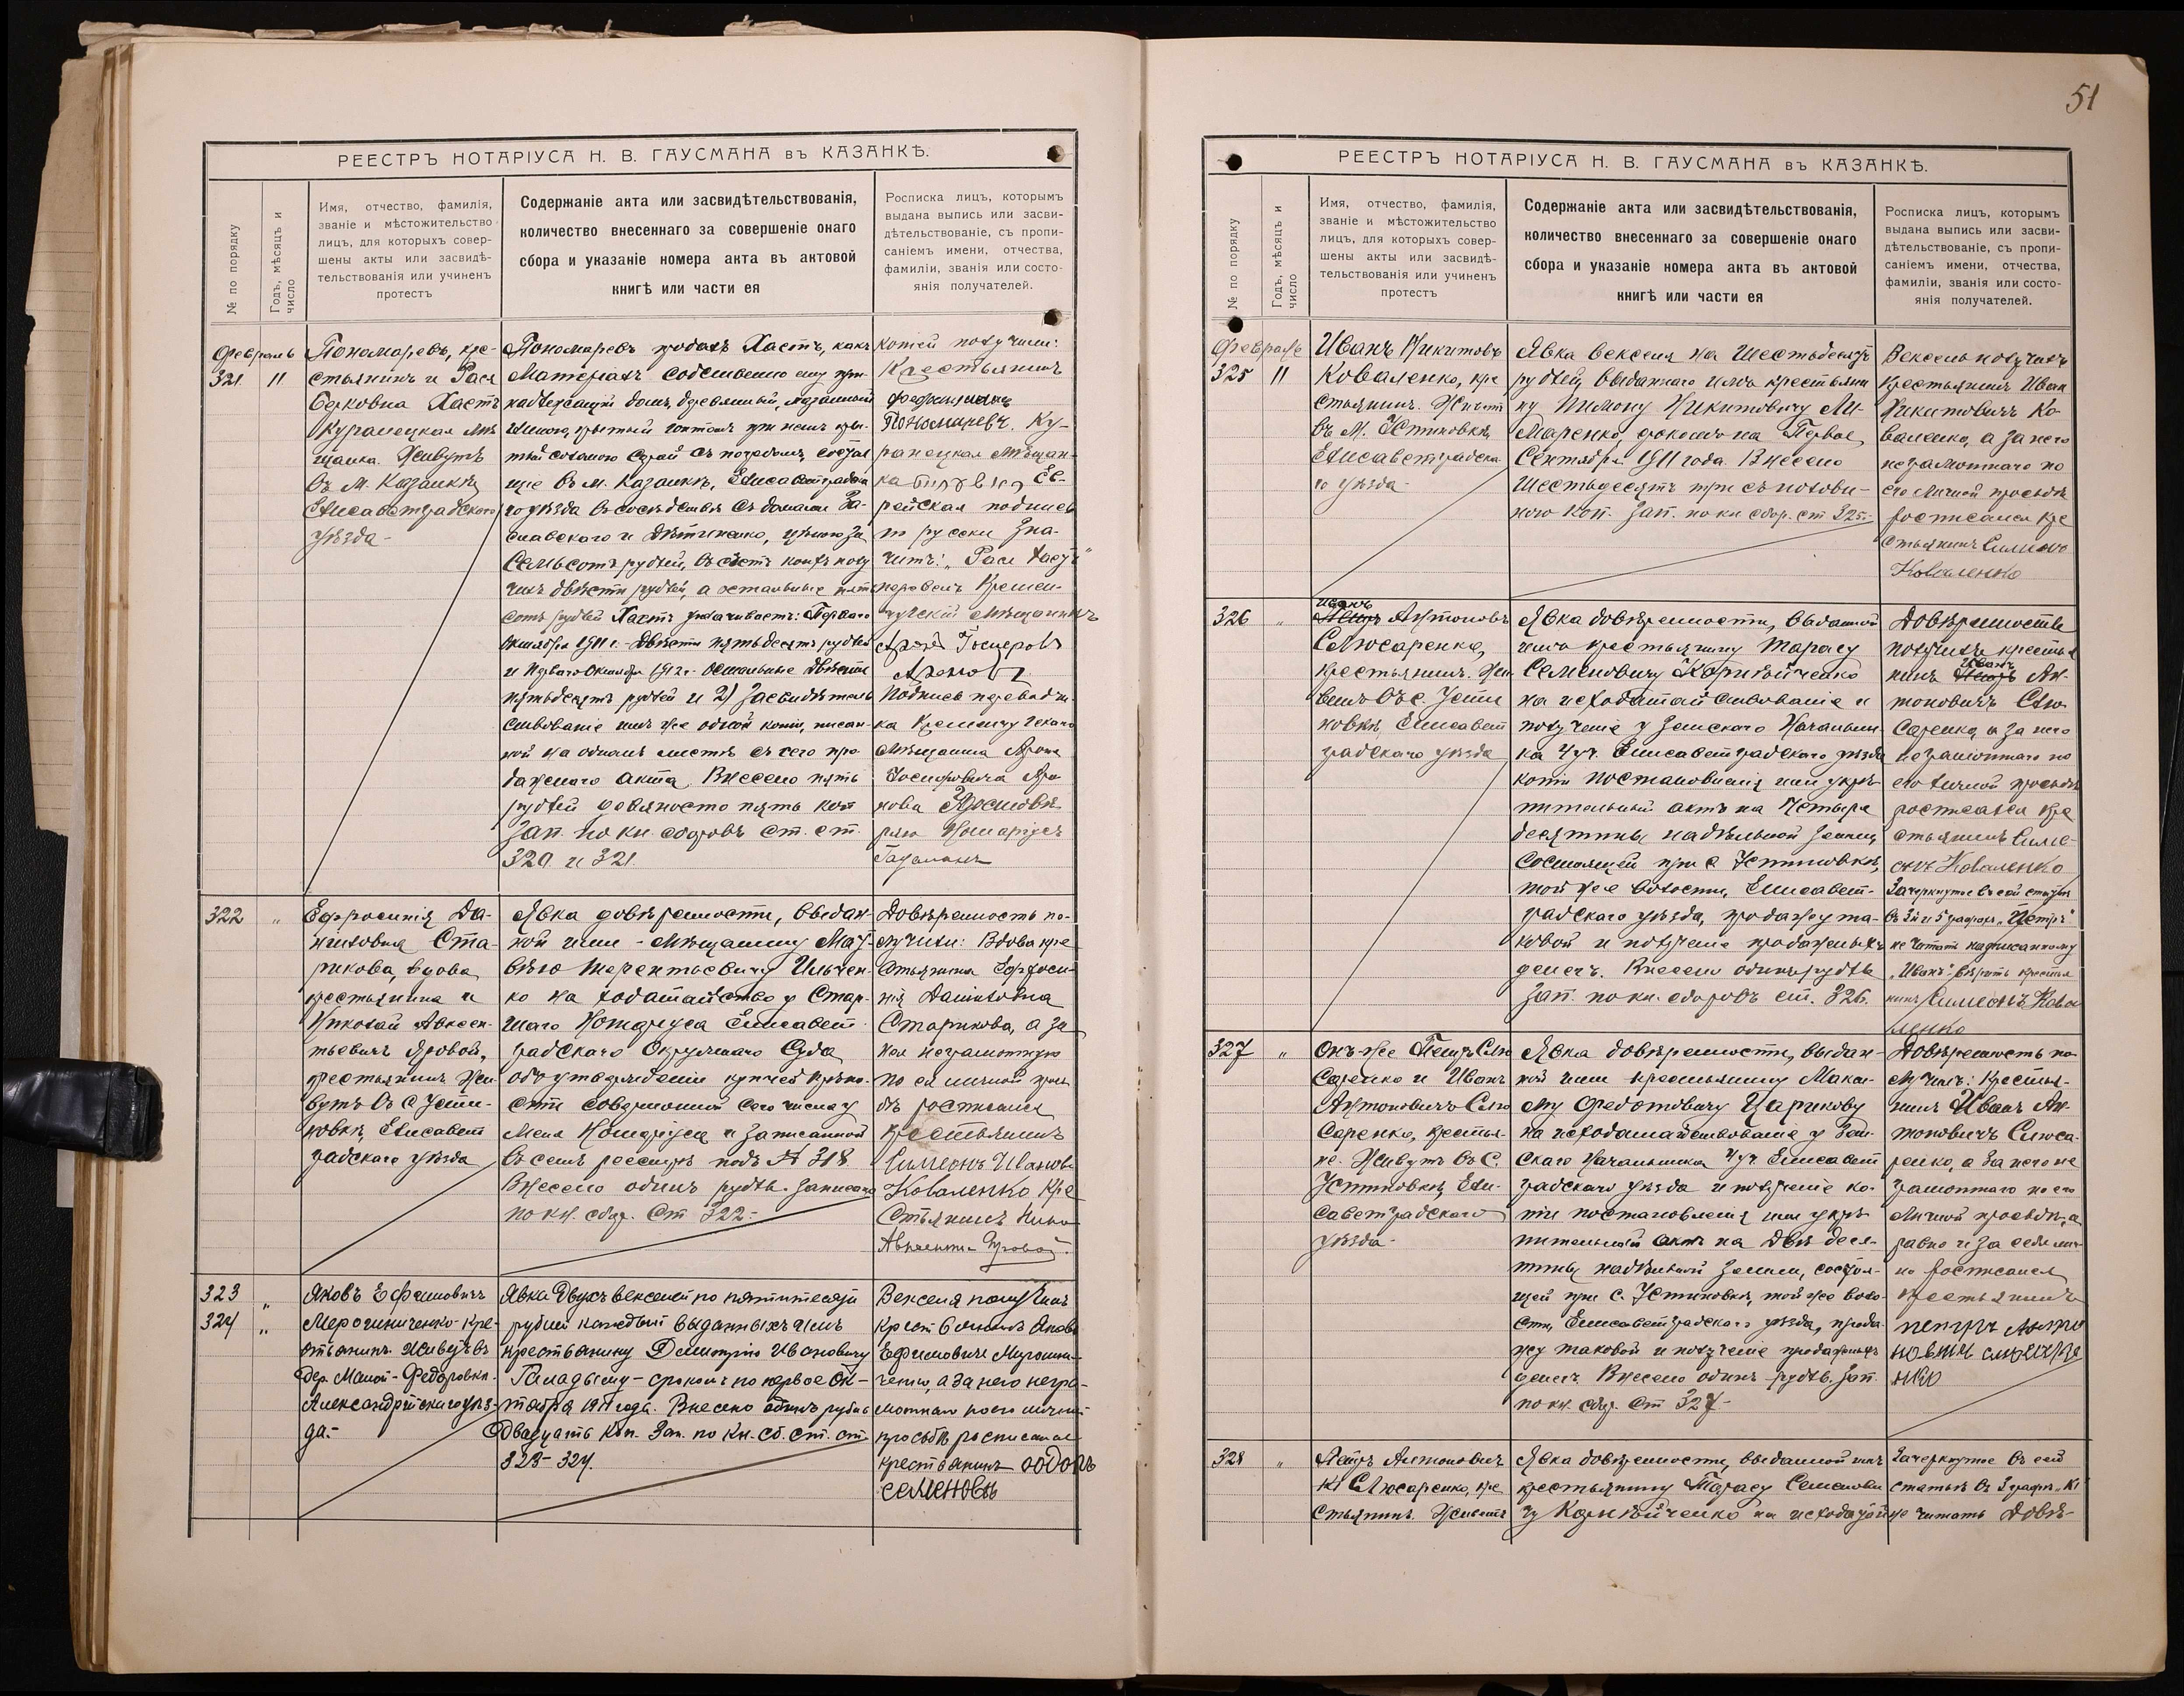 РЕЕСТРЪ НОТАРІУСА Н. В. ГАУСМАНА въ КАЗАНКѢ.
№ по порядку
Годъ, мѣсяцъ и
число
Имя, отчество, фамилія,
званіе и мѣстожительство
лицъ, для которыхъ совер-
шены акты или засвидѣ-
тельствованія или учиненъ
протестъ
Содержаніе акта или засвидѣтельствованія,
количество внесеннаго за совершеніе онаго
сбора и указаніе номера акта въ актовой
книгѣ или части ея
Росписка лицъ, которымъ
выдана выпись или засви-
дѣтельствованіе, съ пропи-
саніемъ имени, отчества,
фамиліи, званія или состо-
янія получателей.
Февраль
321 11
Пономаревъ, кре-
стьянинъ и Рася
Берковна Хастъ
Курганецкая мѣ
щанка. Живутъ
въ м. Казанкѣ,
Елисаветградскаго
уѣзда -
Пономаревъ продалъ Хастъ, какъ
матеріалъ собственно ему при-
надлежащій домъ, деревянный, мазанный
крытый
сарай съ погребомъ, состоя
щіе въ м. Казанкѣ, Елисаветградска
го уѣзда въ сосѣдствѣ съ домами За-
славскаго и цѣною за
семьсотъ рублей, въ счетъ коихъ полу
чилъ двѣсти рублей, а остальные пять
сотъ рублей Хастъ уплачиваетъ: Перваго
Октября 1911 г. - двѣсти пятьдесятъ рублей
и Перваго Октября 1912 г. остальные двѣсти
пятьдесятъ рублей и 2) Засвидѣтель
ствованіе имъ же одной копіи, писан-
ной на одномъ листѣ съ сего про
дажнаго акта. Внесено пять
рублей девяносто пять коп
Зап. по кн. сборовъ ст. ст.
320 и 321.
копіей получили:
Крестьянинъ
Пономаревъ. Ку-
ранецкая мѣщан-
ка Ев-
рейская подпись
по русски зна-
читъ: „Рася Хастъ“
перевелъ Кремен-
чугскій мѣщанинъ
Аронъ Іосифовъ
Ароновъ
Подпись переводчи-
ка Кременчугскаго
мѣщанина Арона
Іосифовича Аро
нова удостовѣ
ряю Нотаріусъ
Гаусманъ
322 "
Ефросинія Да-
ниловна Ста-
рикова, вдова
крестьянина и
Николай Авксен-
тьевичъ Яровой,
крестьянинъ Жи
вутъ въ с Усти-
новкѣ, Елисавет
градскаго уѣзда
Явка довѣренности, выдан-
ной ими - мѣщанину Мат-
вѣю Терентьевичу Ильчен-
ко на ходатайство у Стар-
шаго Нотаріуса Елисавет
градскаго Окружнаго Суда
объ утвержденіи купчей крѣпо-
сти совершонной сего числа у
меня Нотаріуса и записанной
въ семъ реестрѣ подъ № 318
Внесено одинъ рубль. Записано
по кн. сбор. ст 322 -
Довѣренность по-
лучили: Вдова кре
стьянина Ефроси-
нія Даниловна
Старикова, а за
нея неграмотную
по ея личной прось
бѣ росписался
крестьянинъ
Симеонъ Ивановъ
Коваленко Кре
стьянинъ Нико
Авксенти Яровой.
323 "
324 "
Яковъ Ефимовичъ
Мерошниченко - кре-
стьянинъ. Живетъ въ
дер. Малой - Федоровкѣ.
Александрійскаго уѣз-
да. -
Явка двухъ векселей по пятидесяти
рублей каждый выданныхъ имъ
крестьянину Дмитрію Ивановичу
Гладышу - срокомъ по первое Ок-
тября 1911 года. Внесено одинъ рубль
двадцать коп. Зап. по кн. сб. ст. ст.
323 - 324.
Векселя получилъ
крестьянинъ Яковъ
Ефимовичъ Мирошни-
ченко, а за него негра-
мотнаго по его личной
просьбѣ росписался
крестьянинъ
семеновъ
51
РЕЕСТРЪ НОТАРІУСА Н. В. ГАУСМАНА въ КАЗАНКѢ.
№ по порядку
Годъ, мѣсяцъ и
число
Имя, отчество, фамилія,
званіе и мѣстожительство
лицъ, для которыхъ совер-
шены акты или засвидѣ-
тельствованія или учиненъ
протестъ
Содержаніе акта или засвидѣтельствованія,
количество внесеннаго за совершеніе онаго
сбора и указаніе номера акта въ актовой
книгѣ или части ея
Росписка лицъ, которымъ
выдана выпись или засви-
дѣтельствованіе, съ пропи-
саніемъ имени, отчества,
фамиліи, званія или состо-
янія получателей.
Февраль
325 11
Иванъ Никитовъ
Коваленко, кре
стьянинъ. Живет
въ М. Устиновкѣ,
Елисаветградска
го уѣзда -
Явка векселя на шестьдесятъ
рублей, выданнаго имъ крестьяни
ну Никитовичу
срокомъ на Первое
Сентября 1911 года. Внесено
шестьдесятъ три съ полови-
ною коп. Зап. по кн сбор. ст 325 -
Вексель получилъ
крестьянинъ Иван
Никитовичъ Ко
валенко, а за него
неграмотнаго по
его личной просьбѣ
росписался кре
стьянинъ Симеонъ
Коваленко
326 "
Иванъ
Петръ Антоновъ
Слюсаренко,
крестьянинъ. Жи
ветъ въ с. Усти
новкѣ, Елисавет
градскаго уѣзда
Явка довѣренности, выданной
имъ крестьянину Тарасу
Семеновичу Корнѣйченко
на исходатайствованіе и
полученіе у Земскаго Начальни
ка 4 уч. Елисаветградскаго уѣзда
копіи постановленія или укрѣ-
пительный актъ на четыре
десятины надѣльной земли,
состоящей при с Устиновкѣ,
той же волости, Елисавет-
градскаго уѣзда, продажу та-
ковой и полученіе продажныхъ
денегъ. Внесено одинъ рубль
Зап. по кн. сборовъ ст. 326.
Довѣренность
получилъ крестья
Иванъ
нинъ Петръ Ан-
тоновичъ Слю-
саренко, а за него
неграмотнаго по
его личной просьбѣ
росписался кре
стьянинъ Симе-
онъ Коваленко
Зачеркнутое въ сей статьѣ
въ 3 и 5 графахъ „Петръ“
не читать надписанному
„Иванъ“ вѣрить крестья
нинъ Симеонъ Кова
ленко
327 "
Онъ же Петръ Слю
саренко и Иванъ
Антоновичъ Слю
саренко, крестья-
не. Живутъ въ с.
Устиновкѣ, Ели-
саветградскаго
уѣзда -
Явка довѣренности, выдан-
ной ими крестьянину Макси-
му Федотовичу Царикову
на исходатайствованіе у Зем-
скаго Начальника 4 уч. Елисавет
градскаго уѣзда и полученіе ко-
піи постановленія или укрѣ-
пительный актъ на двѣ деся-
тины надѣльной земли, состоя-
щей при с. Устиновкѣ, той же воло-
сти, Елисаветградскаго уѣзда, прода-
жу таковой и полученіе продажныхъ
денегъ. Внесено одинъ рубль. Зап.
по кн. сбор. ст 327 -
Довѣренность по
лучилъ: крестья-
нинъ Иванъ Ан-
тоновичъ Слюса-
ренко, а за него не
грамотнаго по его
личной просьбѣ, а
равно и за себя лич-
но росписался
крестьянинъ
петръ Анто
новичъ слюсаре
нко
328 "
Петръ Антоновичъ
Кі Слюсаренко, кре
стьянинъ. Живетъ
Явка довѣренности, выданной имъ
крестьянину Тарасу Семенови
чу Корнѣйченко на исходатай
Зачеркнутое въ сей
статьѣ въ 3 графѣ „Кі
не читать Довѣ-